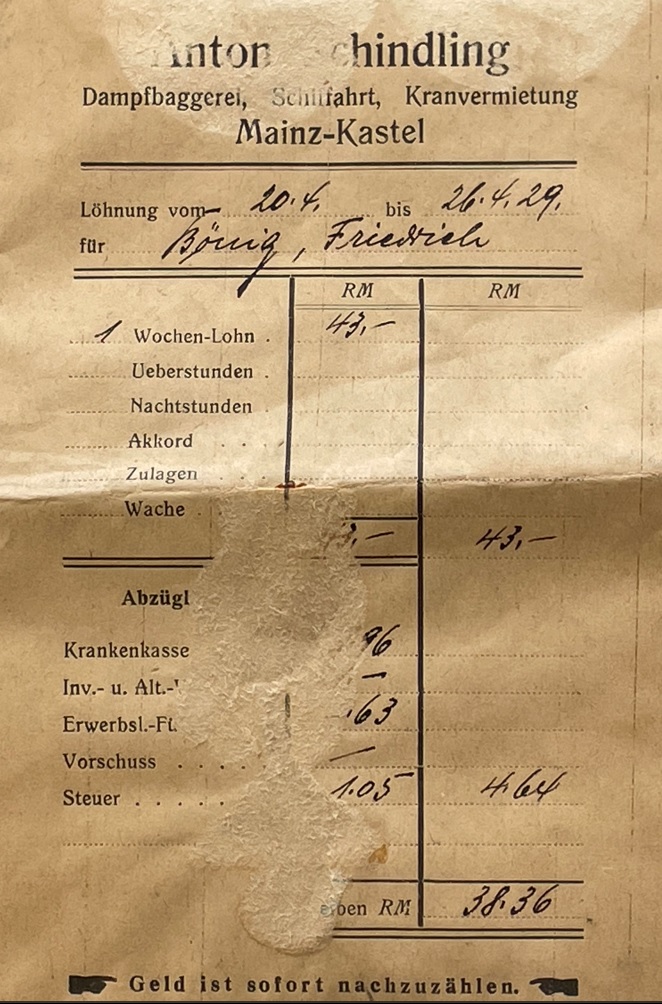 Dampfbaggerei, Schiffahrt, Kranvermietung
Mainz-Kastel
Löhnung vom 20.4. bis 26.4.29.
für Bönig, Friedrich
RM RM
1 Wochen-Lohn . 43,–
Ueberstunden .
Nachtstunden
Akkord . . .
Zulagen . . .
Wache
3.– 43,–
Abzügl
Krankenkasse 96
Inv.- u. Alt.- –
Erwerbsl.- .63
Vorschuss . . . . –
Steuer . . . . . 1.05 4.64
RM 38.36
Geld ist sofort nachzuzählen.